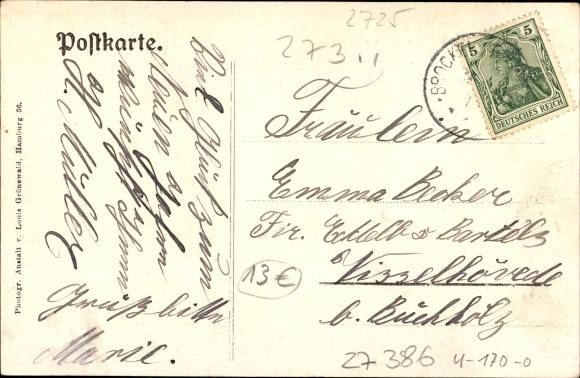 Postkarte.
Viel Glück zum
neuen Jahre
wünscht Ihnen
H. Müller
Gruß bitte
Marie.
Photogr. Anstalt v. Louis Grünewald, Hamburg 36.
2725
273
BROCK
5 5
DEUTSCHES REICH
Fräulein
Emma Becker
Fir. & Bartels
Visselhövede
b. Buchholz
13€
27386 4-170-0